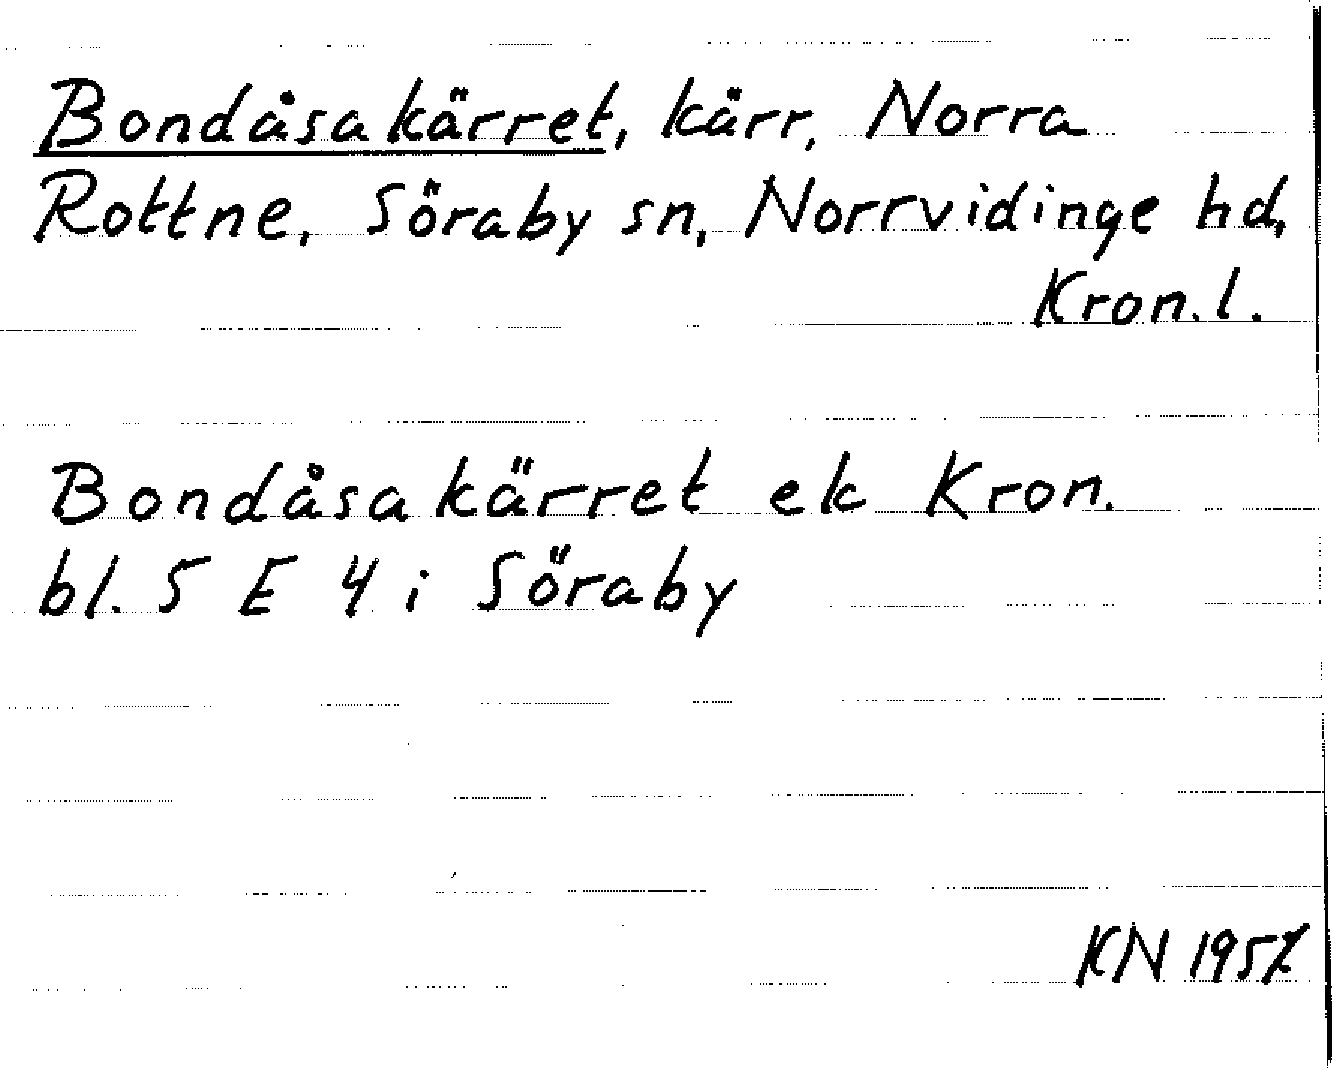 Bondåsakärret, kärr, Norra
Rottne, Söraby sn, Norrvidinge hd,
Kron.l.
Bondåsakärret ek Kron.
bl. 5 E 4 i Söraby
KN 1957